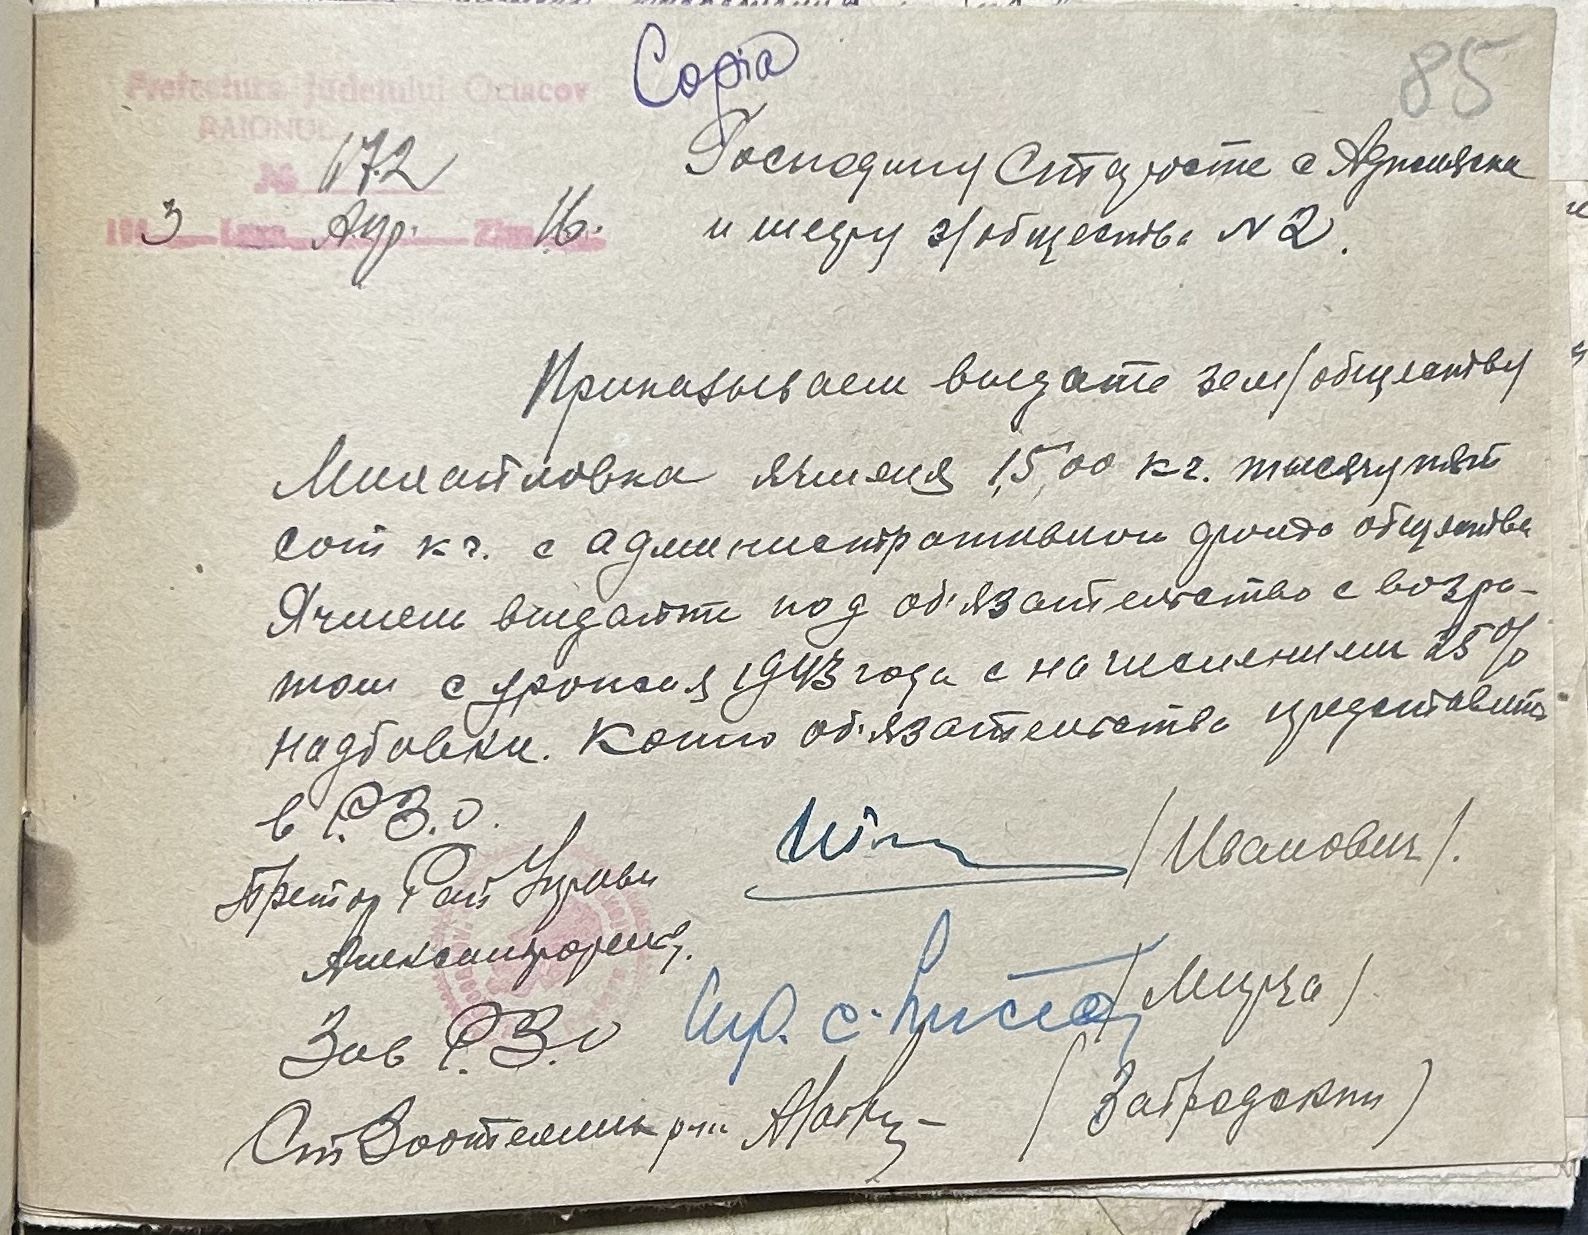 Copia
85
Prefectura Judetului Oceacov
RAIONUL
№ 172
1943 Luna Апр. Ziua 16.
Господину Старосте с
и шефу з/общества N 2.
Приказываем выдать зем/обществу
Михайловка ячменя 1,500 кг. тысячу пят
сот кг. с административного фонда общества
Ячмень выдайте под об'язательство с возра-
том с урожая 1943 года с начислением 25%
надбавки. Копию об'язательства представить
в Р.З.О.
Претор Рай Управы /Иванович/.
Зав Р.З.О /Мирча/
Ст Зоотехник рай (Завродский)